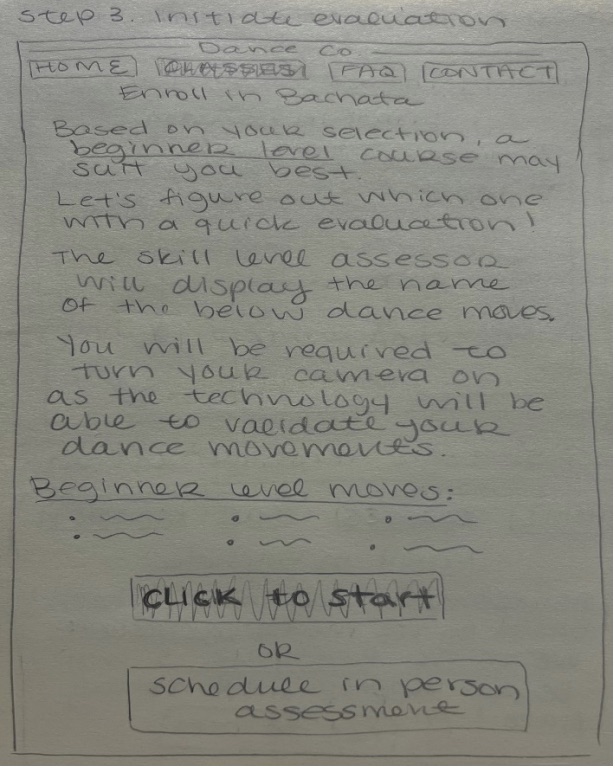 Step 3. Initiate evaluation
Dance Co.
HOME CLASSES FAQ CONTACT
Enroll in Bachata
Based on your selection, a
beginner level course may
suit you best.
Let's figure out which one
with a quick evaluation!
The skill level assessor
will display the name
of the below dance moves.
You will be required to
turn your camera on
as the technology will be
able to validate your
dance movements.
Beginner level moves:
CLICK to start
OR
schedule in person
assessment